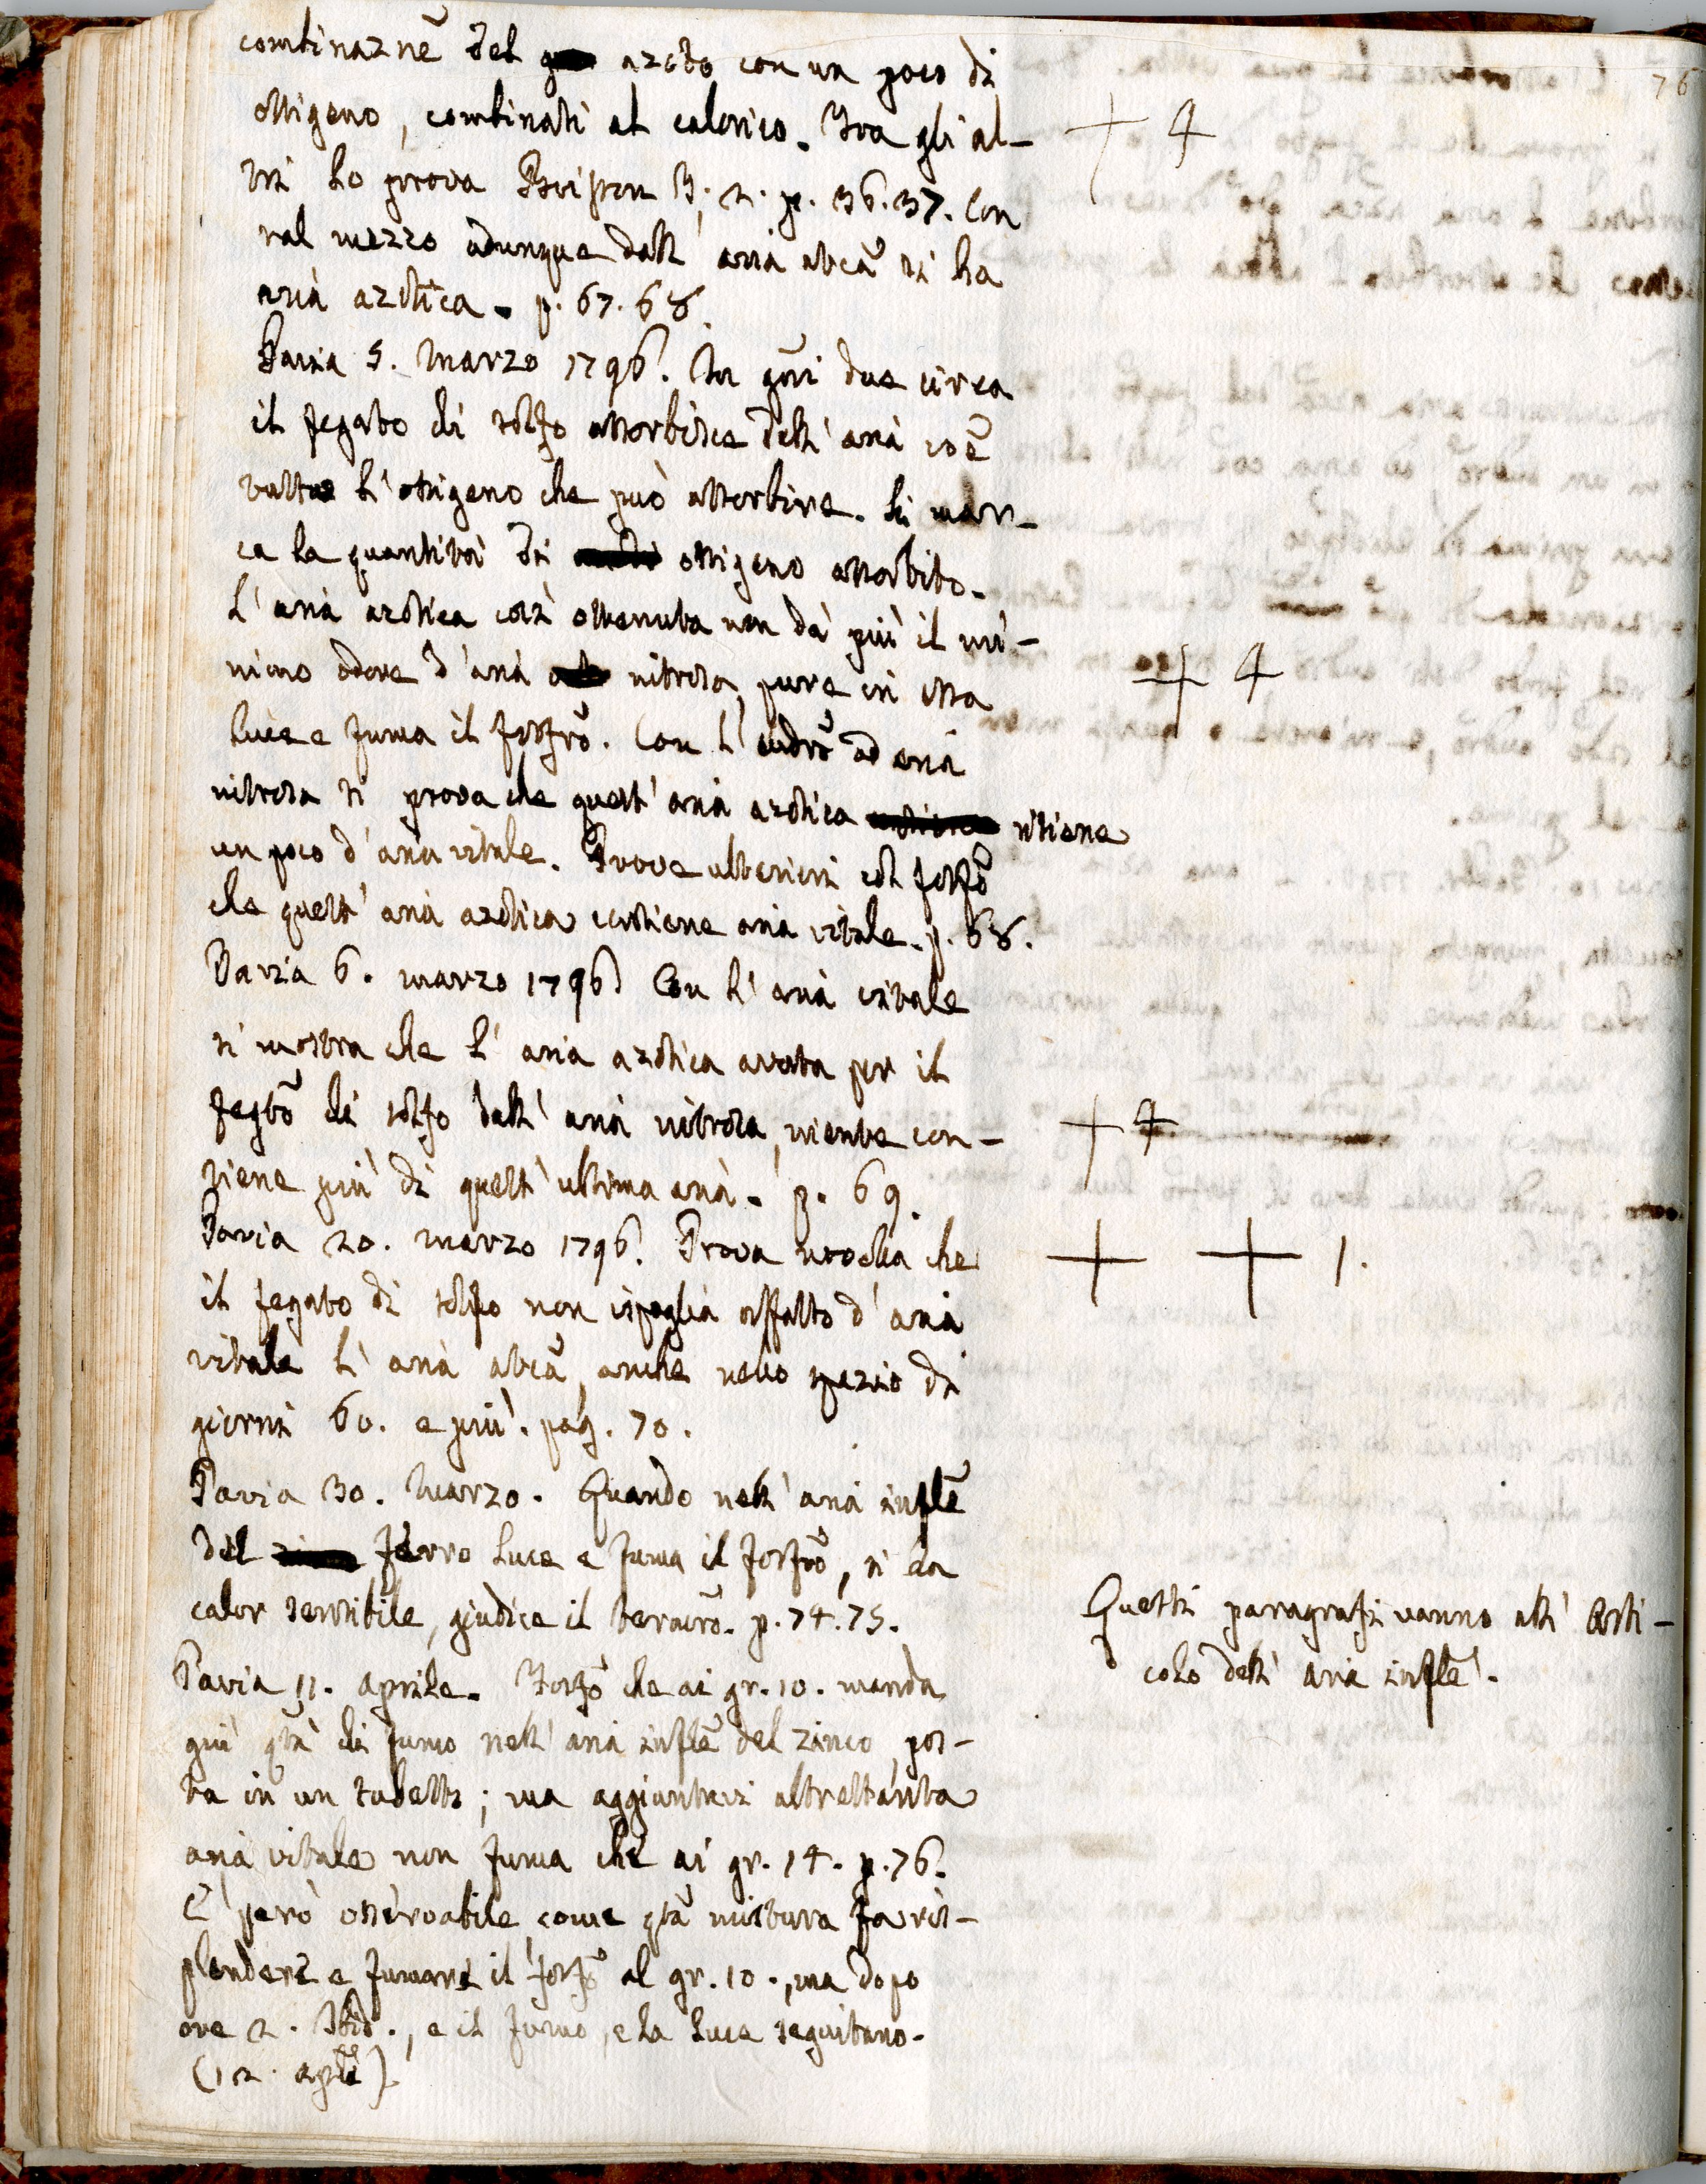 combinaznẽ del azoto con un poco di
ossigeno, combinati al calorico. Tra gli al-
tri lo prova Brisson T. 2. p. 36.37. Con
tal mezzo adunque dall' aria atcã si ha
aria azotica. p. 67.68.
Pavia 5. Marzo 1796. In gñri due circa
il fegato di solfo assorbisce dell' aria coẽ
tutto l'ossigeno che può assorbire. Si mar-
ca la quantità di ossigeno assorbito.
L' aria azotica così ottenuta non dà più il mi-
nimo odore d'aria nitrosa, pure in essa
luce e fuma il fosfrõ. Con l' eudrõ ad aria
nitrosa si prova che quest' aria azotica ritiene
un poco d' aria vitale. Prove ulteriori col fosfõ
che quest' aria azotica contiene aria vitale. p. 68.
Pavia 6. marzo 1796. Con l' aria vitale
si mostra che l' aria azotica avuta per il
fegtõ di solfo dall' aria nitrosa, niente con-
tiene più di quest' ultima aria. p. 69.
Pavia 20. marzo 1796. Prova novella che
il fegato di solfo non ispoglia affatto d' aria
vitale l' aria atcã, anche nello spazio di
giorni 60. e più. pag. 70.
Pavia 30. Marzo. Quando nell' aria inflẽ
del ferro luce e fuma il fosfrõ, si ha
calor sensibile, giudice il termrõ. p. 74.75.
Pavia 11. aprile. Fosfõ che ai gr. 10. manda
qtà di fumo nell' aria inflẽ del zinco, pos-
ta in un tubetto; ma aggiuntavi altrettanta
aria vitale non fuma che ai gr. 14. p. 76.
E' però osservabile come qtã mistura fa ris-
plendere e fumare il fosfõ al gr. 10., ma dopo
ore 2. Ibid., e il fumo, e la luce seguitano.
(12. aplẽ)
76
+ 4
+ 4
+ 4
+ + 1.
Questi paragrafi vanno all' Arti-
colo dell' aria inflẽ.